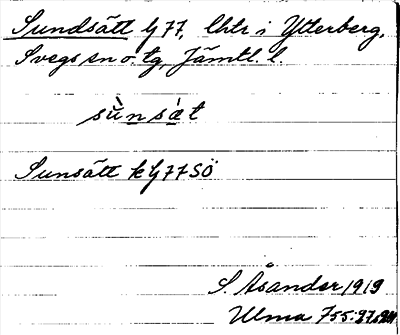 Sundsätt G 77, lhtr i Ytterberg,
Svegs sn o. tg, Jämtl. l.
sùnsæ̀t
Sunsätt k G 77 SÖ
S. Åsander 1919
Ulma 755:27,